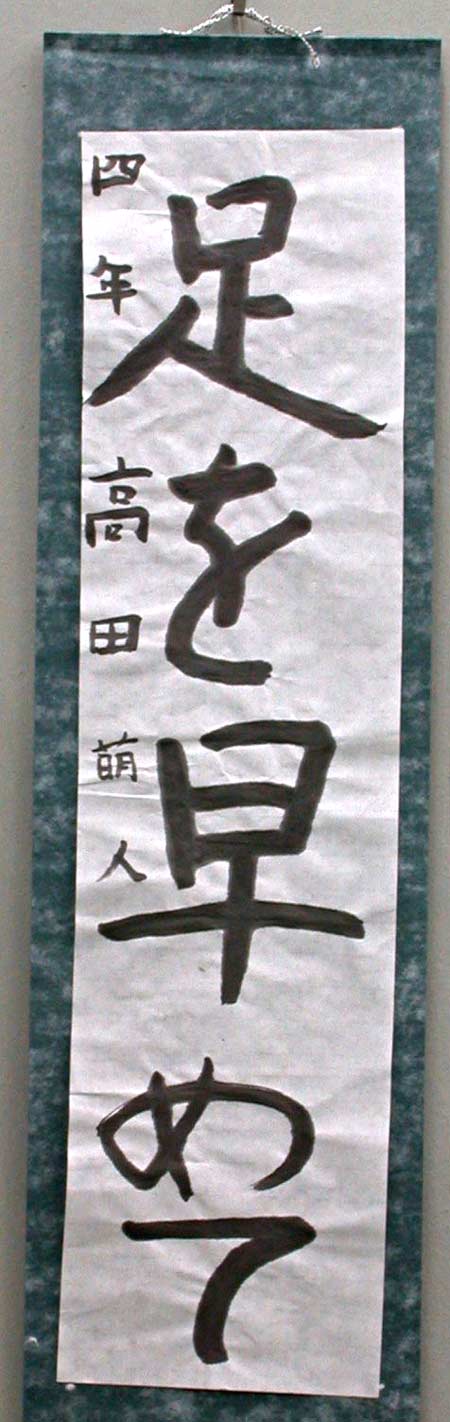 足を早めて
四年 高田萌人